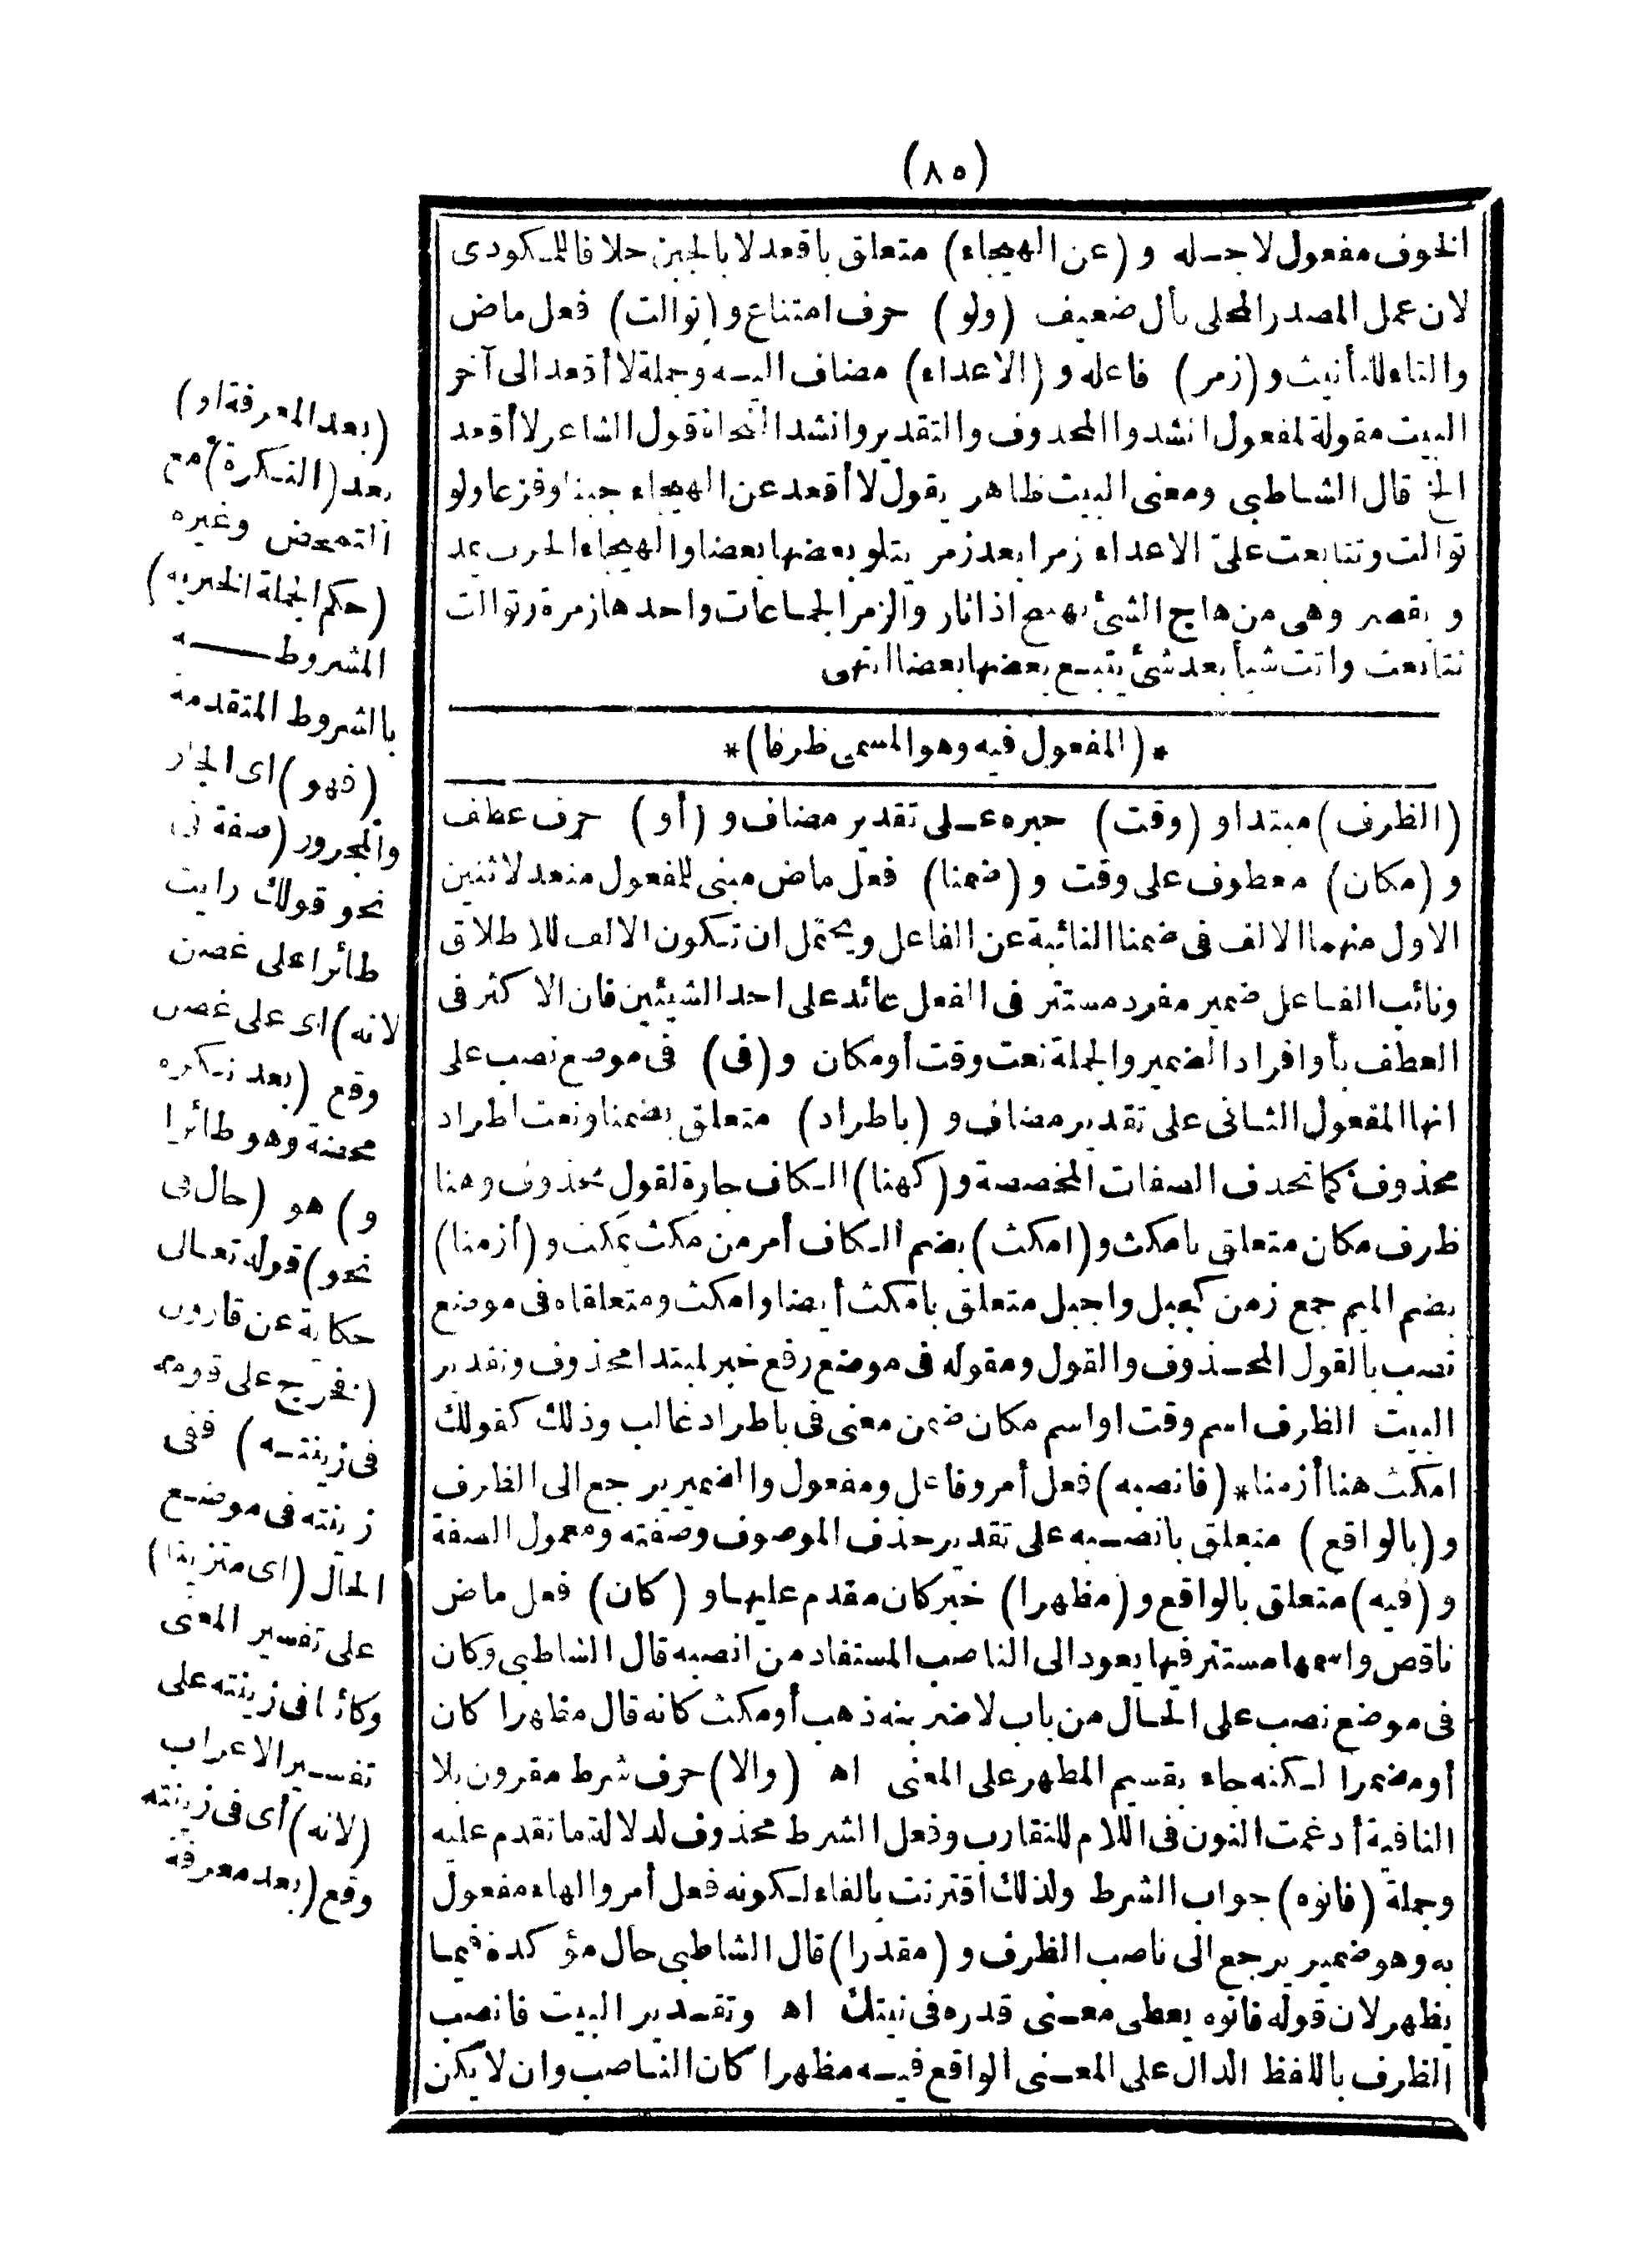 (٨٥)
الخوف مفعول لاجله و (عن الهيجاء) متعلق باقعد لا بالجبن خلافا للمكودى
لان عمل المصدر المحلى بأل ضعيف (ولو) حرف امتناع و (توالت) فعل ماض
والتاء للتأنيث و (زمر) فاعله و (الاعداء) مضاف اليه وجملة لا أقعد الى آخر
البيت مقولة لمفعول انشدوا المحذوف والتقدير وانشد النحاة قول الشاعر لا أقعد
الخ قال الشاطبى ومعنى البيت ظاهر يقول لا أقعد عن الهيجاء جبنا وفزعا ولو
توالت وتتابعت علىّ الاعداء زمرا بعد زمر يتلو بعضها بعضا والهيجاء الحرب يمد
و يقصر وهى من هاج الشئ يهيج اذا ثار والزمر الجماعات واحدها زمرة وتوالت
تتابعت واتت شيأ بعد شئ يتبع بعضها بعضا انتهى
*(المفعول فيه وهو المسمى ظرفا)*
(الظرف) مبتدا و (وقت) خبره على تقدير مضاف و (أو) حرف عطف
و (مكان) معطوف على وقت و (ضمنا) فعل ماض مبنى للمفعول متعد لاثنين
الاول منهما الالف فى ضمنا النائبة عن الفاعل ويحتمل ان تكون الالف للاطلاق
ونائب الفاعل ضمير مفرد مستتر فى الفعل عائد على احد الشيئين فان الاكثر فى
العطف بأو افراد الضمير والجملة نعت وقت أو مكان و (فى) فى موضع نصب على
انها المفعول الثانى على تقدير مضاف و (باطراد) متعلق بضمنا ونعت اطراد
محذوف كما تحذف الصفات المخصصة و (كهنا) الكاف جارة لقول محذوف وهنا
ظرف مكان متعلق بامكث و (امكث) بضم الكاف أمر من مكث يمكث و (أزمنا)
بضم الميم جمع زمن كجبل واجبل متعلق بامكث أيضا وامكث ومتعلقاه فى موضع
نصب بالقول المحذوف والقول ومقوله فى موضع رفع خبر لمبتدا محذوف وتقدير
البيت الظرف اسم وقت او اسم مكان ضمن معنى فى باطراد غالب وذلك كقولك
امكث هنا أزمنا* (فانصبه) فعل أمر وفاعل ومفعول والضمير يرجع الى الظرف
و (بالواقع) متعلق بانصبه على تقدير حذف الموصوف وصفته ومعمول الصفة
و (فيه) متعلق بالواقع و (مظهرا) خبر كان مقدم عليها و (كان) فعل ماض
ناقص واسمها مستتر فيها يعود الى الناصب المستفاد من انصبه قال الشاطبى وكان
فى موضع نصب على الحال من باب لاضربنه ذهب أو مكث كانه قال مظهرا كان
أو مضمرا لكنه جاء بقسيم المظهر على المعنى اه (والا) حرف شرط مقرون بلا
النافية أدغمت النون فى اللام للتقارب وفعل الشرط محذوف لدلالة ما تقدم عليه
وجملة (فانوه) جواب الشرط ولذلك اقترنت بالفاء لكونه فعل أمر والهاء مفعول
به وهو ضمير يرجع الى ناصب الظرف و (مقدرا) قال الشاطبى حال مؤكدة فيما
يظهر لان قوله فانوه يعطى معنى قدره فى نيتك اه وتقدير البيت فانصب
الظرف باللفظ الدال على المعنى الواقع فيه مظهرا كان الناصب وان لا يكن
(بعد المعرفة او)
بعد (النكرة) مع
التمحض وغيره
(حكم الجملة الخبرية)
المشروطه
بالشروط المتقدمة
(فهو) اى الجار
والمجرور (صفة فى
نحو قولك رايت
طائرا على غصن
لانه) اى على غصن
وقع (بعد نكره
محضة وهو طائرا
و) هو (حال فى
نحو) قوله تعالى
حكاية عن قارون
(نخرج على قومه
فى زينته) ففى
زينته فى موضع
الحال (اى متزينا)
على تفسير المعنى
وكائنا فى زينته على
تفسير الاعراب
(لانه) أى فى زينته
وقع (بعد معرفة